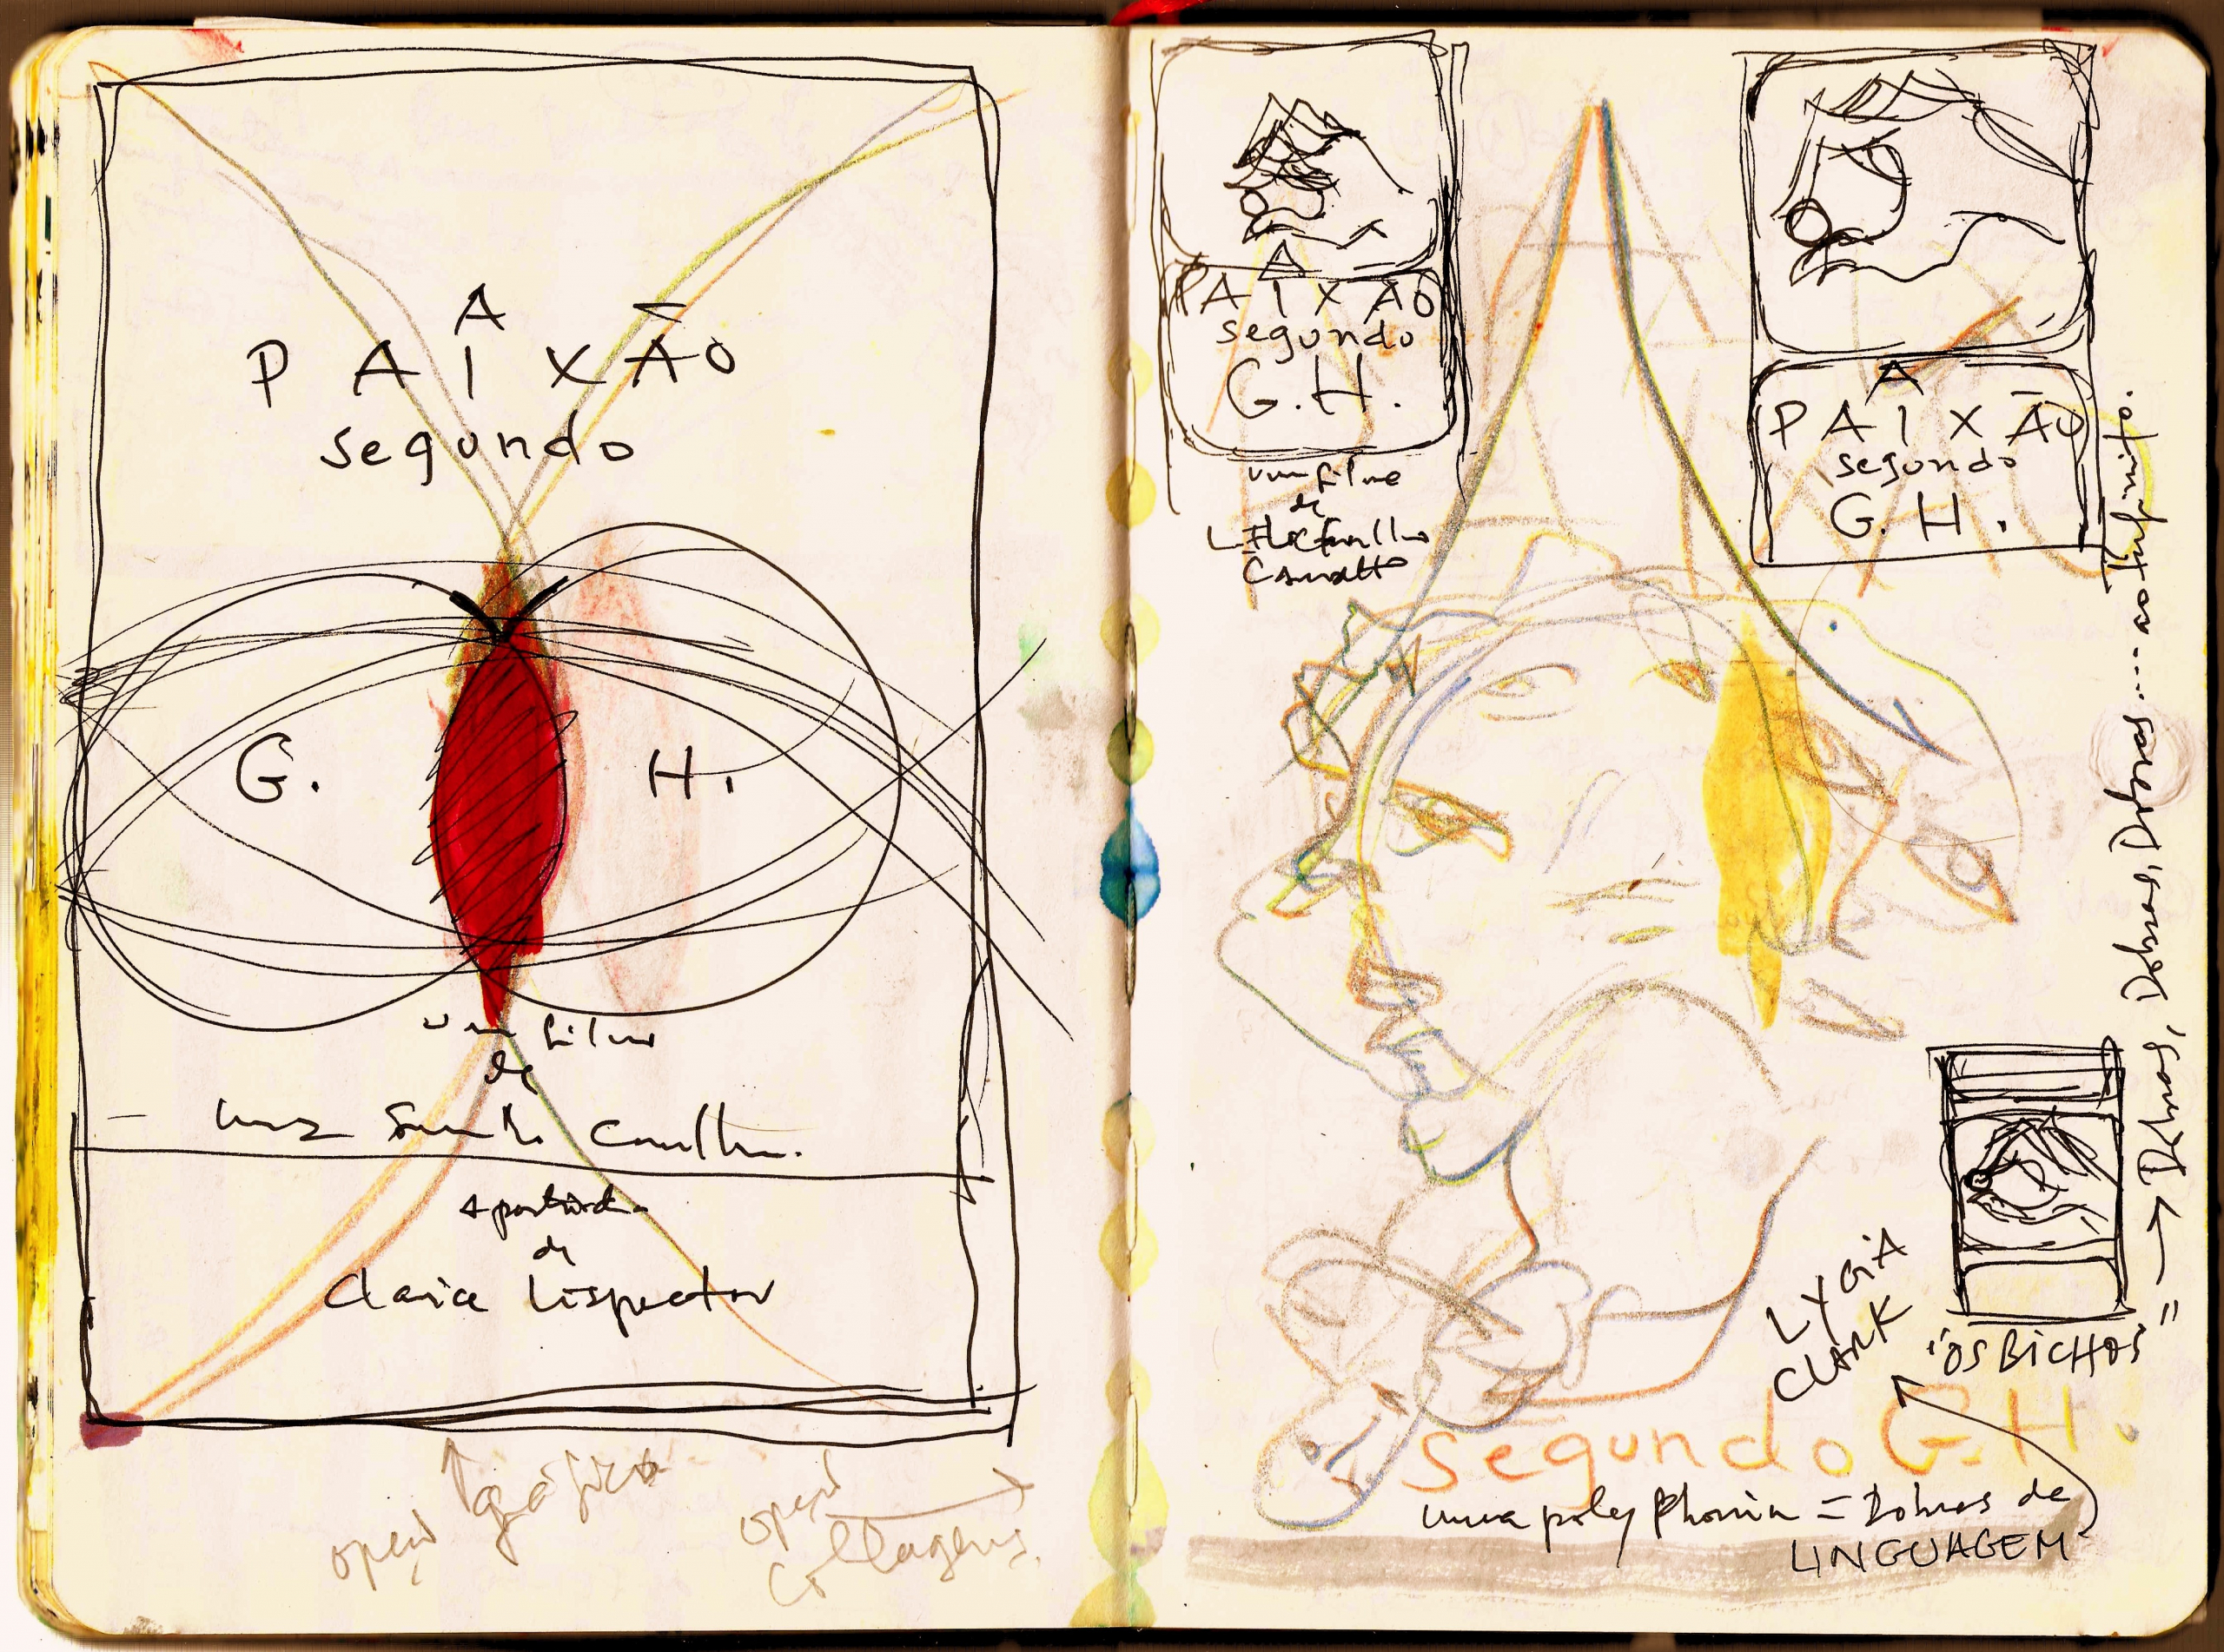 A
PAIXÃO
segundo
G. H.
um filme
de
Luiz
a partir de
de
Clarice Lispector
opção gráfica
opção
collagens.
A
PAIXÃO
segundo
G.H.
um filme
de
L. F.
Carvalho
A
PAIXÃO
segundo
G. H.
LYGIA
CLARK
"OS BICHOS"
= → Dobras, Dobras, Dobras.... ao infinito.
segundo G.H.
uma polyphonia = Dobras de
LINGUAGEM